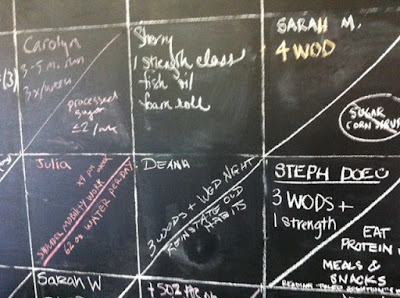 Carolyn
3-5 mi. run
3x/week
processed
sugar
≤2/wk
Sherry
1 strength class
fish oil
foam roll
SARAH M.
4 WOD
SUGAR
CORN SYRUP
Julia
SHOULDER MOBILITY WORK
x4 per week
62 oz WATER PER DAY
DEANA
3 WODS + WED NIGHT
REINSTATE OLD
HABITS
STEPH DOEG
3 WODS +
1 strength
EAT
PROTEIN
MEALS &
SNACKS
Sarah W